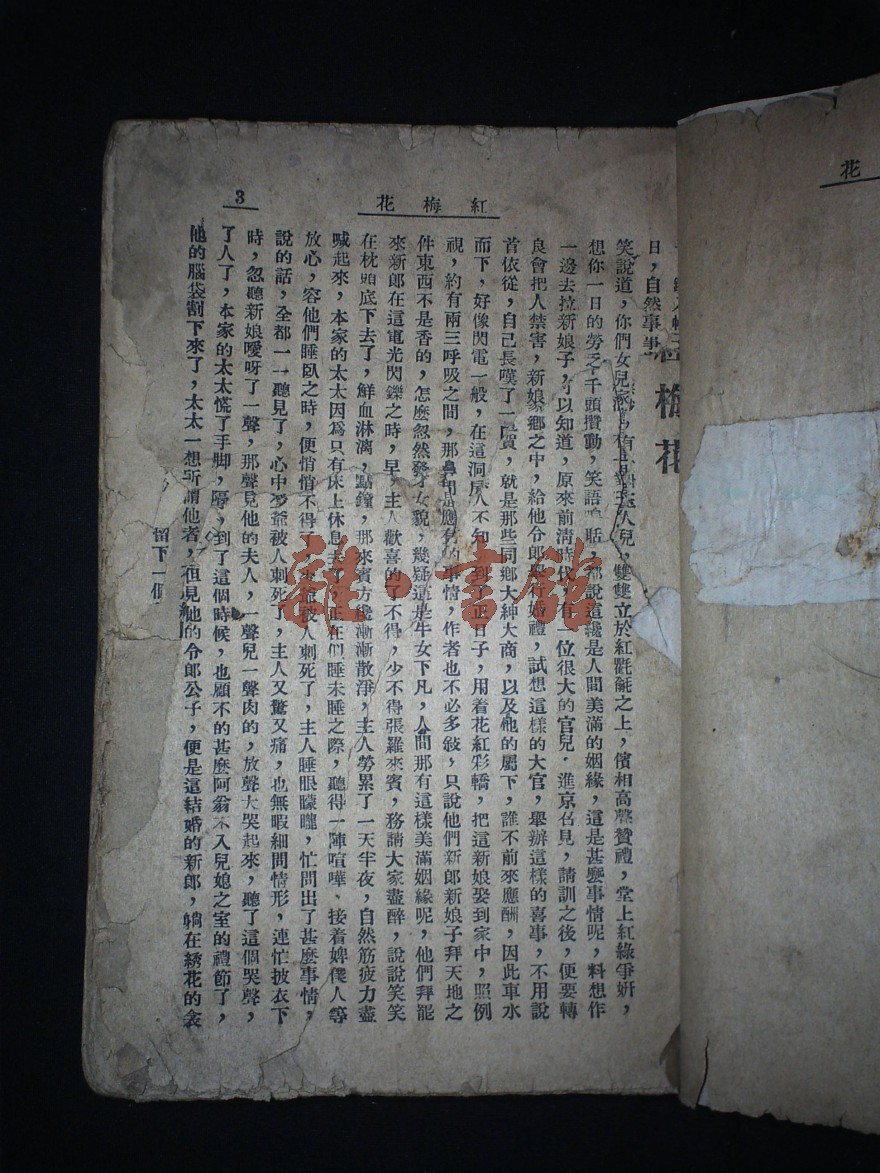 花
紅梅花
3
梅花
日，自然事事
笑說道，你們女兒家 人兒，雙雙立於紅氍毹之上，儐相高聲贊禮，堂上紅綠爭妍，
想你一日的勞 千頭攢動，笑語 聒，都說這纔是人間美滿的姻緣，這是甚麼事情呢，料想作
一邊去拉新娘子，可以知道，原來前清時代，有一位很大的官兒，進京召見，請訓之後，便要轉
良會把人禁害，新娘 鄉之中，給他令郎舉行婚禮，試想這樣的大官，舉辦這樣的喜事，不用說
首依從，自己長嘆了一 賀，就是那些同鄉大紳大商，以及他的屬下，誰不前來應酬，因此車水
而下，好像閃電一般，在這洞房 人不知 到了正日子，用着花紅彩轎，把這新娘娶到家中，照例
視，約有兩三呼吸之間，那 應有的事情，作者也不必多敍，只說他們新郎新娘子拜天地之
件東西不是香的，怎麼忽然發 才女貌，幾疑這是牛女下凡，人間那有這樣美滿姻緣呢，他們拜罷
來新郎在這電光閃鑠之時，早 主人歡喜的了不得，少不得張羅來賓，務請大家盡醉，說說笑笑
在枕頭底下去了，鮮血淋漓， 點鐘，那來賓方纔漸漸散淨，主人勞累了一天半夜，自然筋疲力盡
喊起來，本家的太太因爲只有 床上休息去了，正在似睡未睡之際，聽得一陣喧嘩，接着婢僕人等
放心，容他們睡臥之時，便悄悄 不得了，少爺被人刺死了，主人睡眼矇矓，忙問出了甚麼事情，
說的話，全都一一聽見了，心中 爺被人刺死了，主人又驚又痛，也無暇細問情形，連忙披衣下
時，忽聽新娘噯呀了一聲，那聲 見他的夫人，一聲兒一聲肉的，放聲大哭起來，聽了這個哭聲，
了人了，本家的太太慌了手脚， 到了這個時候，也顧不的甚麼阿翁不入兒媳之室的禮節了，
他的腦袋割下來了，太太一想所謂他者， 但見他的令郎公子，便是這結婚的新郎，躺在綉花的衾
留下一個
雜·書館